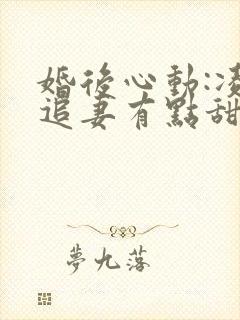 婚後心動:
追妻有點甜
夢九落